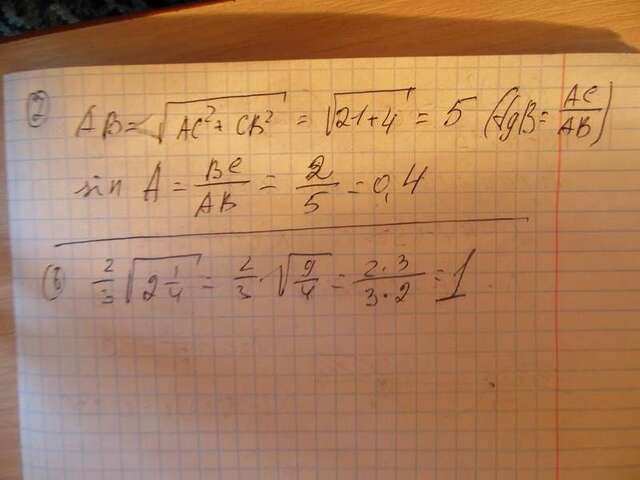 7 AB = √AC² + CB² = √21+4 = 5 (tgB = AC/AB)
sin A = BC/AB = 2/5 = 0,4
6 2/3 √2 1/4 = 2/3 · √9/4 = 2·3/3·2 = 1